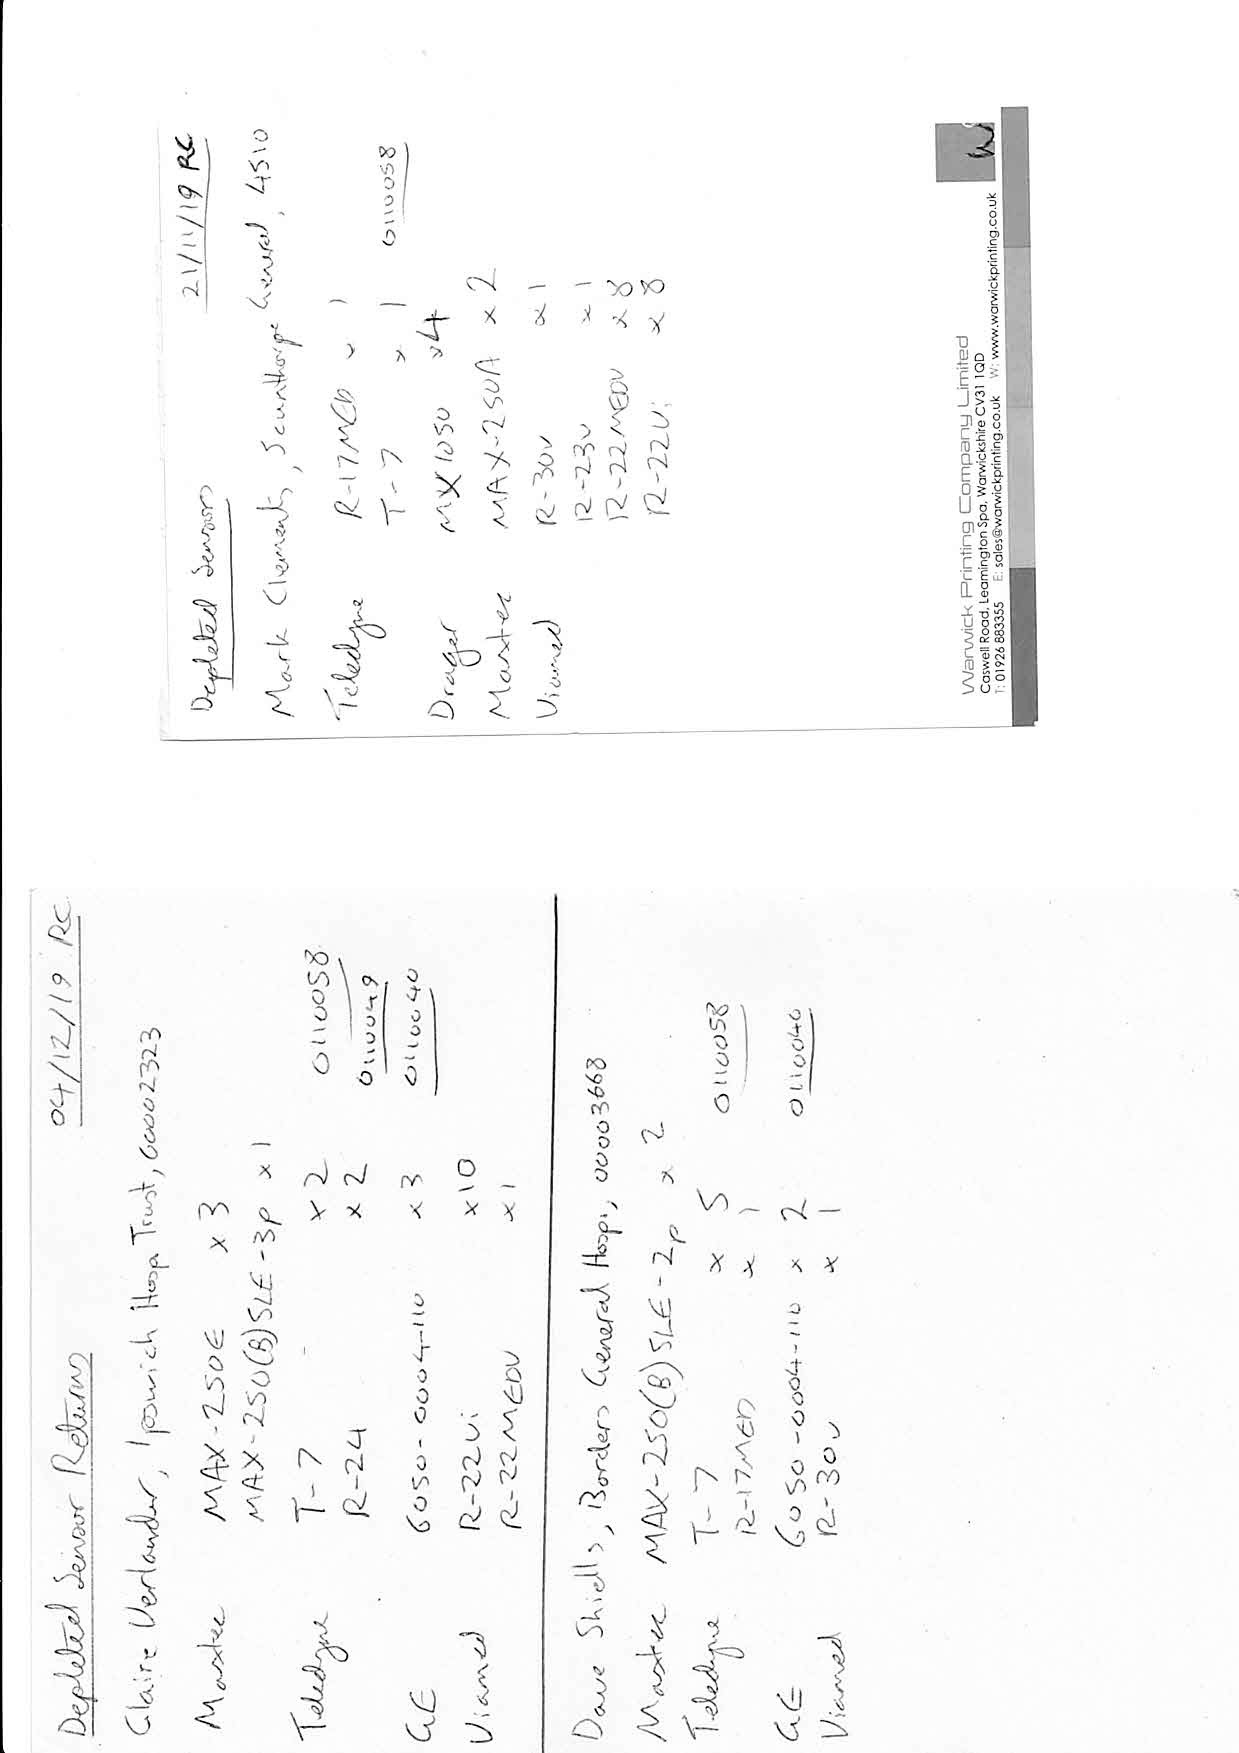 Depleted Sensor Returns 04/12/19 RC
Claire Verlander, Ipswich Hosp Trust, 00002323
Maxtec MAX-250E x 3
MAX-250(B)SLE-3p x 1
Teledyne T-7 x 2 0110058
R-24 x 2 0110049
GE 6050-0004-110 x 3 0110040
Viamed R-22Vi x 10
R-22MEDV x 1
Dave Shiells, Borders General Hosp, 00003668
Maxtec MAX-250(B)SLE-2p x 2
Teledyne T-7 x 5 0110058
R-17MED x 1
GE 6050-0004-110 x 2 0110040
Viamed R-30V x 1
Depleted Sensors 21/11/19 RC
Mark Clements, Scunthorpe General, 4510
Teledyne R-17MED x 1
T-7 x 1 0110058
Drager MX1050 x4
Maxtec MAX-250A x 2
Viamed R-30V x 1
R-23V x 1
R-22MEDV x 8
R-22Vi x 8
Warwick Printing Company Limited
Caswell Road, Leamington Spa, Warwickshire CV31 1QD
T: 01926 883355 E: sales@warwickprinting.co.uk W: www.warwickprinting.co.uk